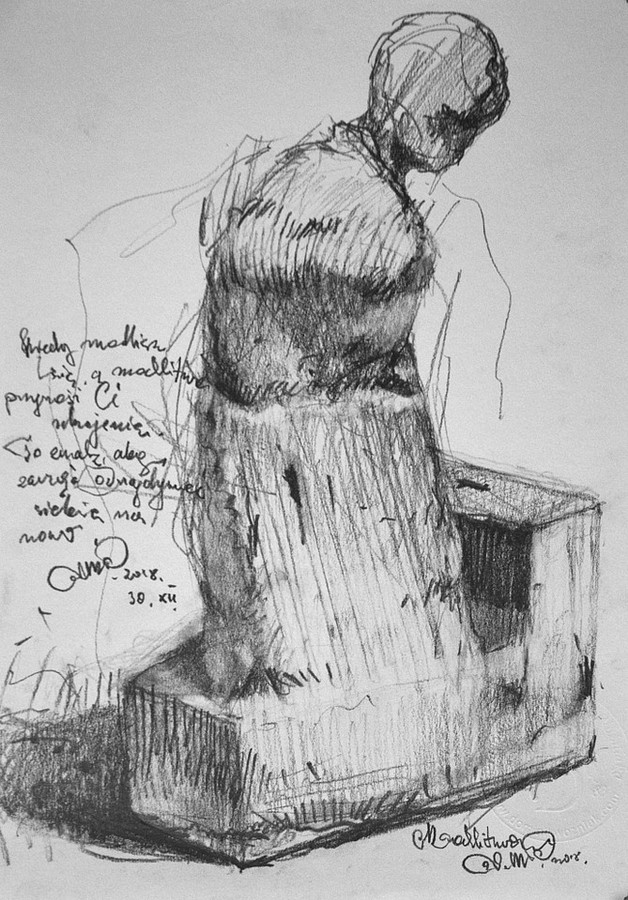 Kiedy modlisz
się, a modlitwa
przynosi Ci
ukojenie,
To znak, abyś
odnajdywać
siebie na
nowo
2018.
30. XII.
Modlitwa
2018.